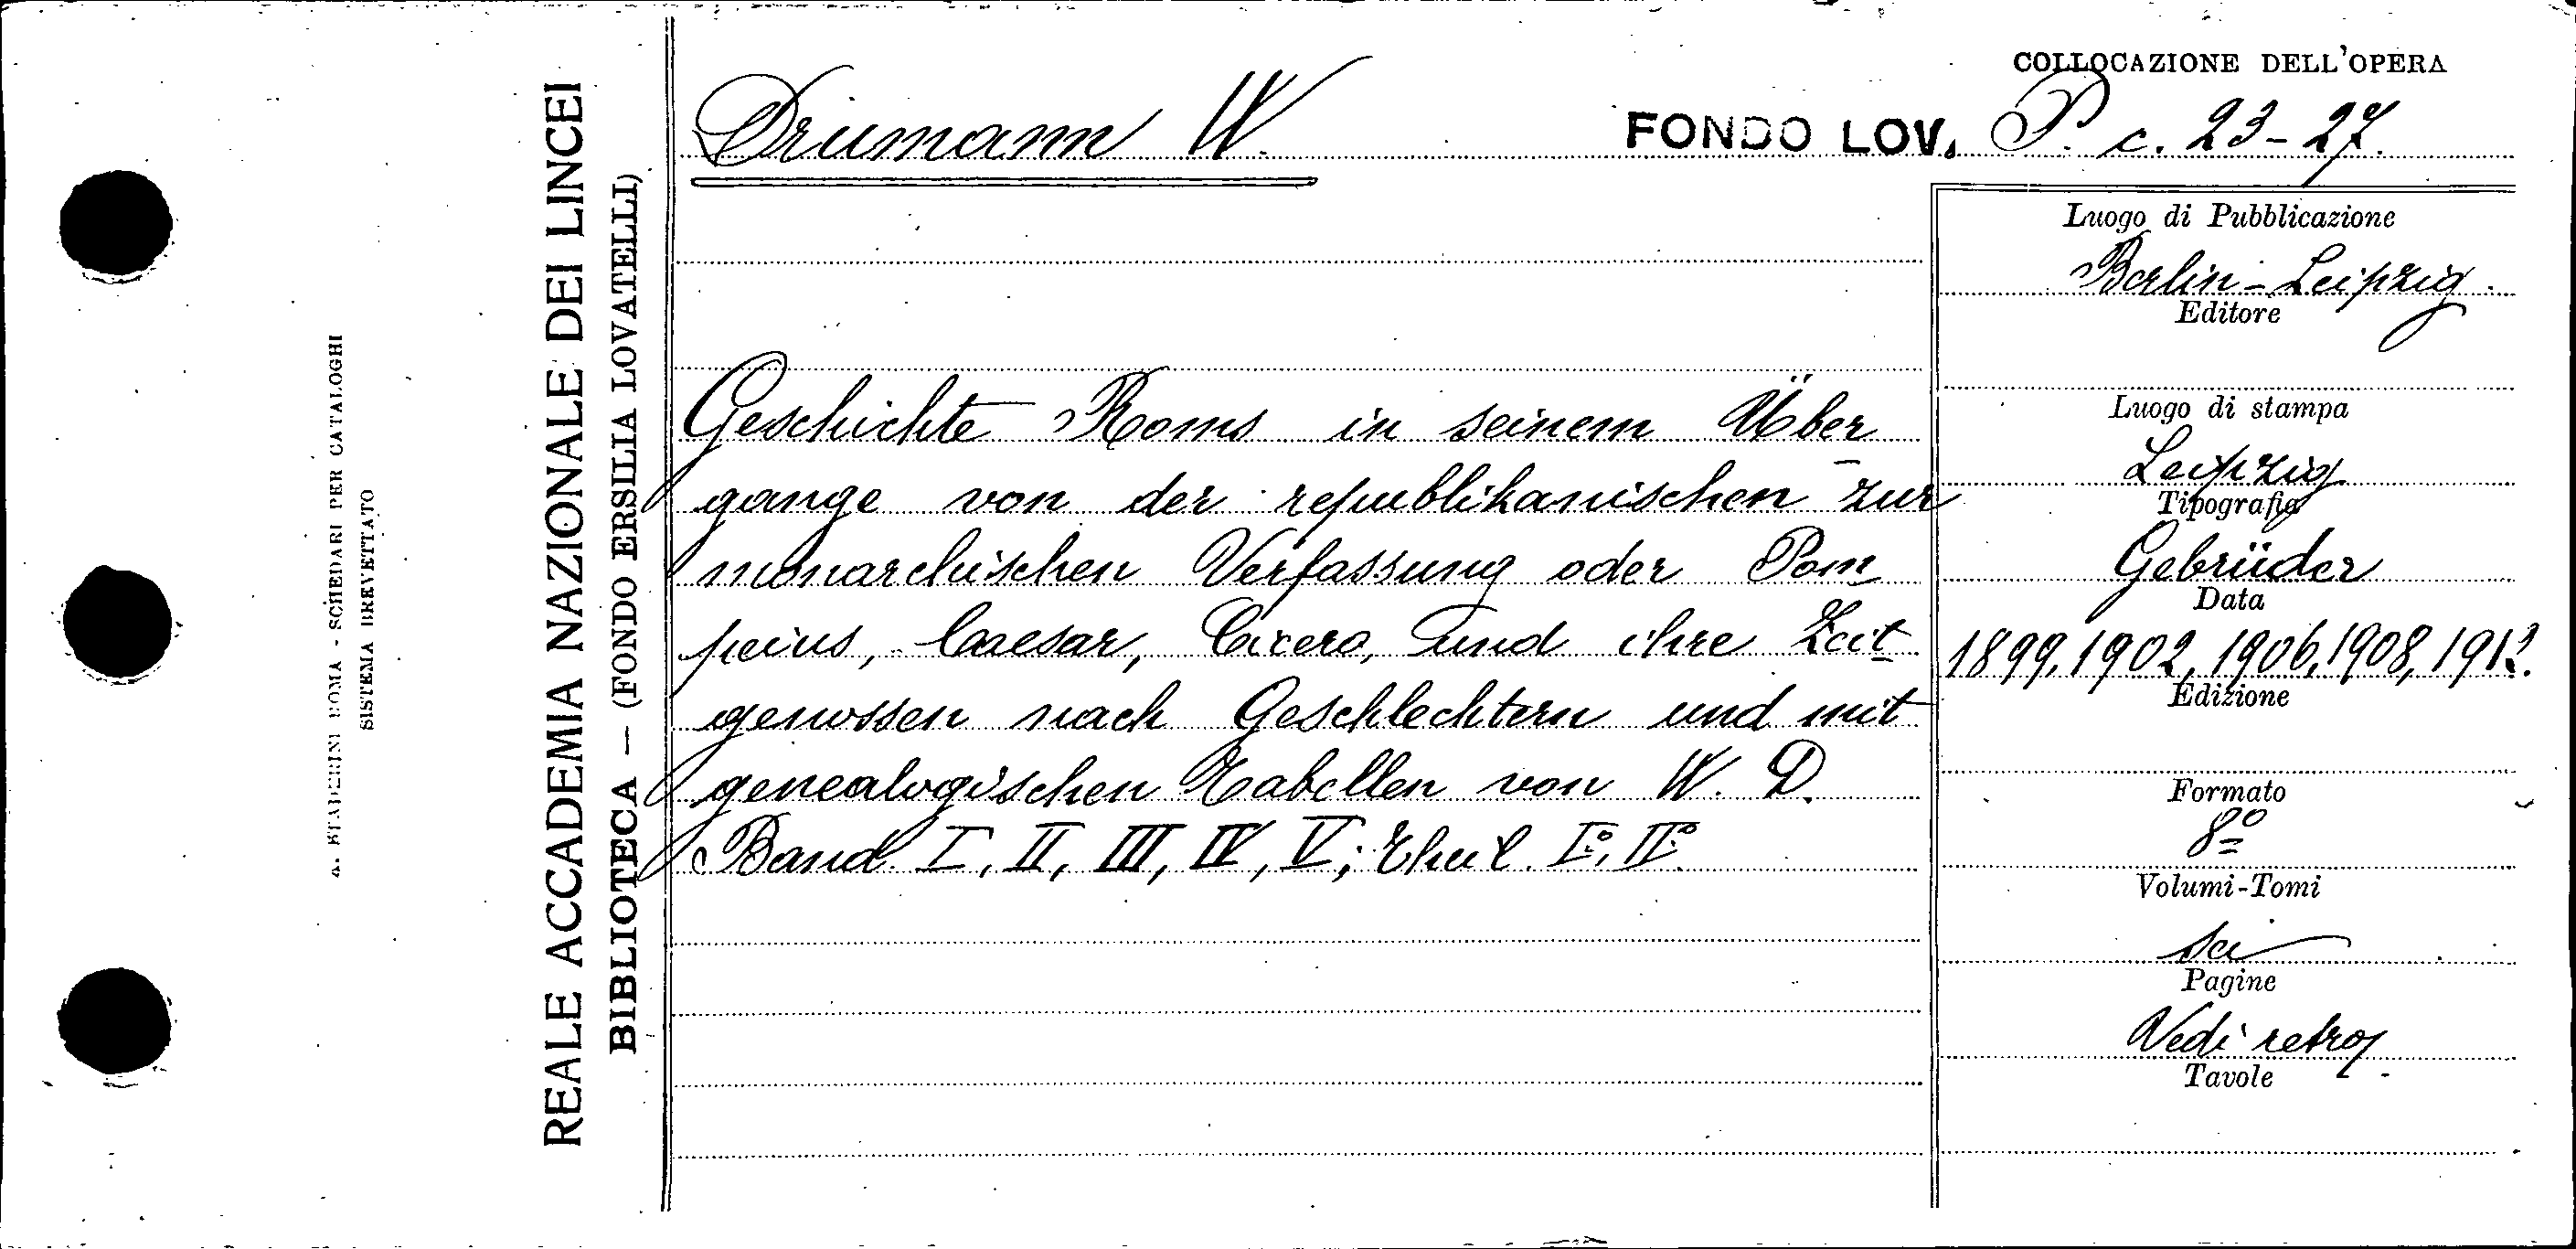 COLLOCAZIONE DELL'OPERA
Drumann W.
FONDO LOV. P. c. 23-27.
REALE ACCADEMIA NAZIONALE DEI LINCEI
BIBLIOTECA — (FONDO ERSILIA LOVATELLI)
SCHEDARI PER CATALOGHI
SISTEMA BREVETTATO
Geschichte Roms in seinem Über
gange von der republikanischen zur
monarchischen Verfassung oder Pom
peius, Caesar, Cicero, und ihre Zeit
genossen nach Geschlechtern und mit
genealogischen Tabellen von W. D.
Band I, II, III, IV, V; Theil I°, II°
Luogo di Pubblicazione
Berlin-Leipzig.
Editore
Luogo di stampa
Leipzig
Tipografia
Gebrüder
Data
1899, 1902, 1906, 1908,
Edizione
Formato
8°
Volumi-Tomi
sei
Pagine
Vedi retro
Tavole